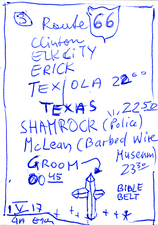 5
Route 66
Clinton
ELK CITY
ERICK
TEXOLA 2200
TEXAS
22.50
SHAMROCK (Police)
McLean (Barbed Wire
Museum)
GROOM 23 30
00 45
BIBLE
BELT
1 V 17